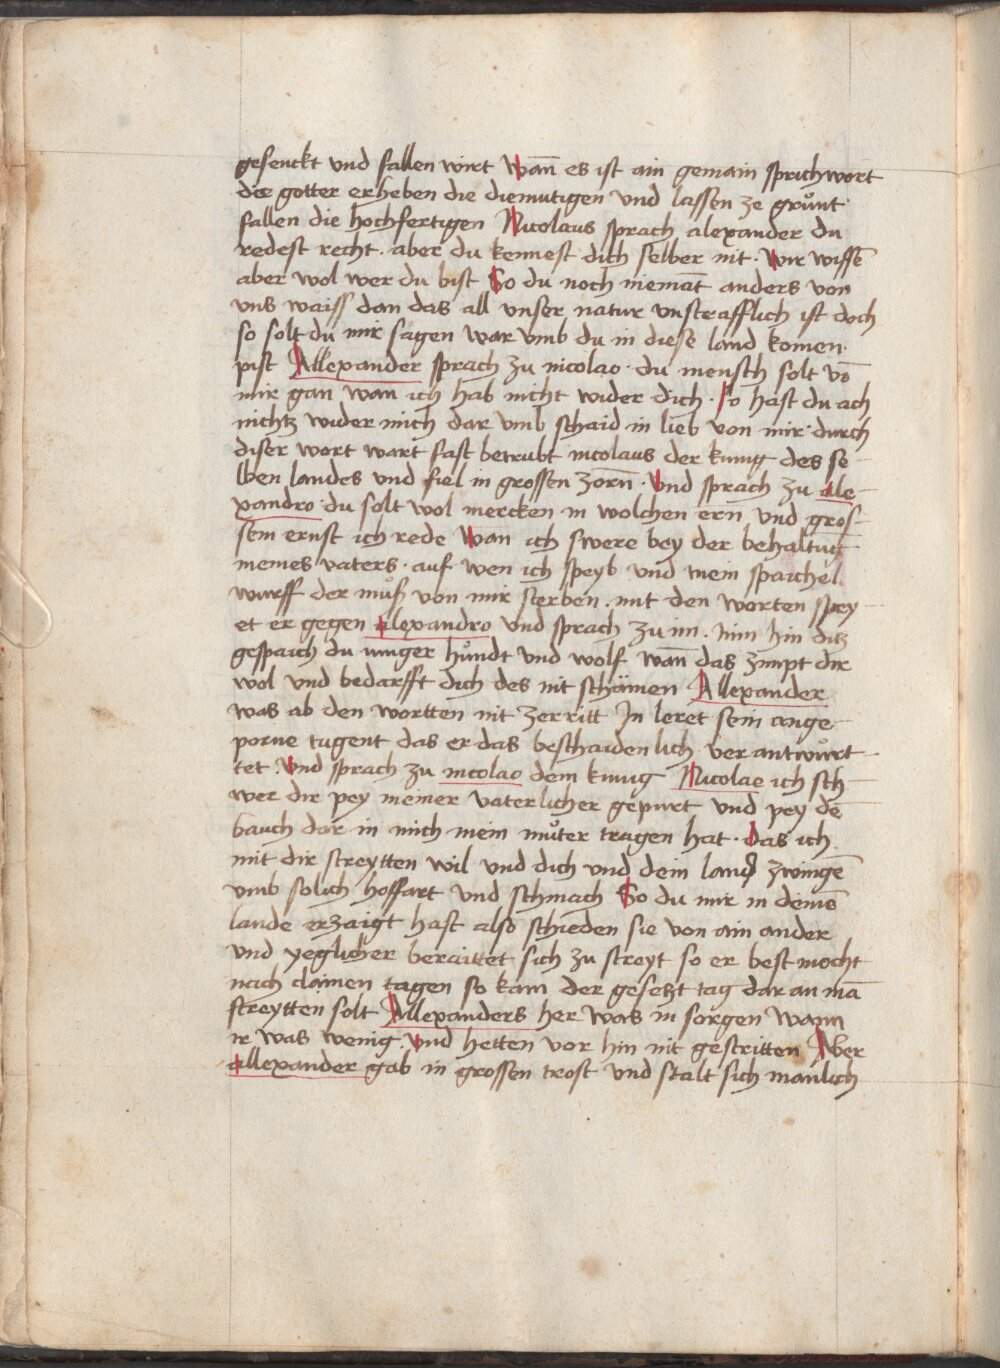 gesenckt vnd fallen wirt Wan̄ es ist ain gemain sprichwort
die gotter erheben die diemutigen vnd lassen ze grůnt
fallen die hochfertigen Nicolaus sprach alexander du
redest recht · aber du kennest dich selber nit · Wir wissē
aber wol wer du bist So du noch niemāt anders von
vns waiss dan das all vnser natur vnstrafflich ist doch
so solt du mir sagen war vmb du in diese land komen
pist Allexander sprach zu nicolao · du mensch solt vō
mir gan wan ich hab nicht wider dich · So hast du ach
nichtz wider mich dar vmb schaid in lieb von mir · durch
diser wort wart fast betrubt nicolaus der kunig des se-
lben landes vnd fiel in grossen zorn̄ · Vnd sprach zu ale-
xandro · du solt wol mercken in wolchen ern vnd gros-
sem ernst ich rede Wan ich swere bey der behaltūg
meines vaters · auf wen ich speyb vnd mein spaichel
wurff der můß von mir sterben · mit den worten spey-
et er gegen alexandro vnd sprach zu im · Nim hin ditz
gespaich du iunger hůndt vnd wolf wan̄ das zimpt dir
wol vnd bedarfft dich des nit schämen Allexander
was ab den wortten nit zerritt In leret sein ange-
porne tugent das er das beschaidenlich verantwůrt-
tet · Vnd sprach zu nicolao dem kunig Nicolae ich sch-
wer dir pey meiner vaterlicher gepurt vnd pey dē
bauch dar in mich mein můter tragen hat · Das ich
mit dir streytten wil vnd dich vnd dein land zwingē
vmb solich hoffart vnd schmach So du mir in deinē
lande erzaigt hast also schieden sie von ain ander
vnd yeglicher beraittet sich zu streyt so er best mocht
nach clainen tagen so kam der gesetzt tag dar an mā
streytten solt Allexanders her was in sorgen wann
ir was wenig · Vnd hetten vor hin nit gestritten Aber
Allexander gab in grossen trost vnd stalt sich manlich